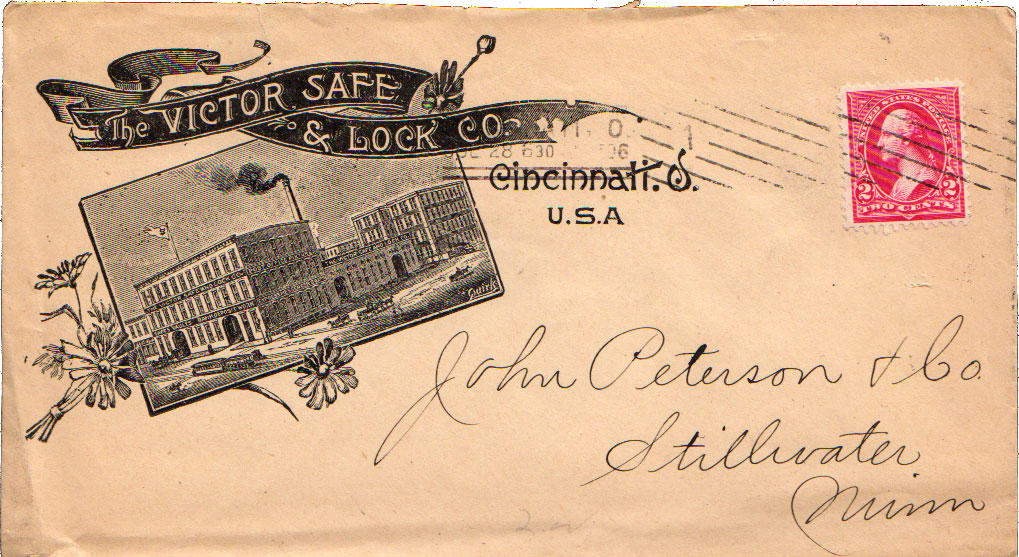 The VICTOR SAFE
& LOCK CO.
Cincinnati. O.
U.S.A
28 630 96
1
UNITED STATES POSTAGE
2 2
TWO CENTS
Quirk
John Peterson & Co.
Stillwater
Minn